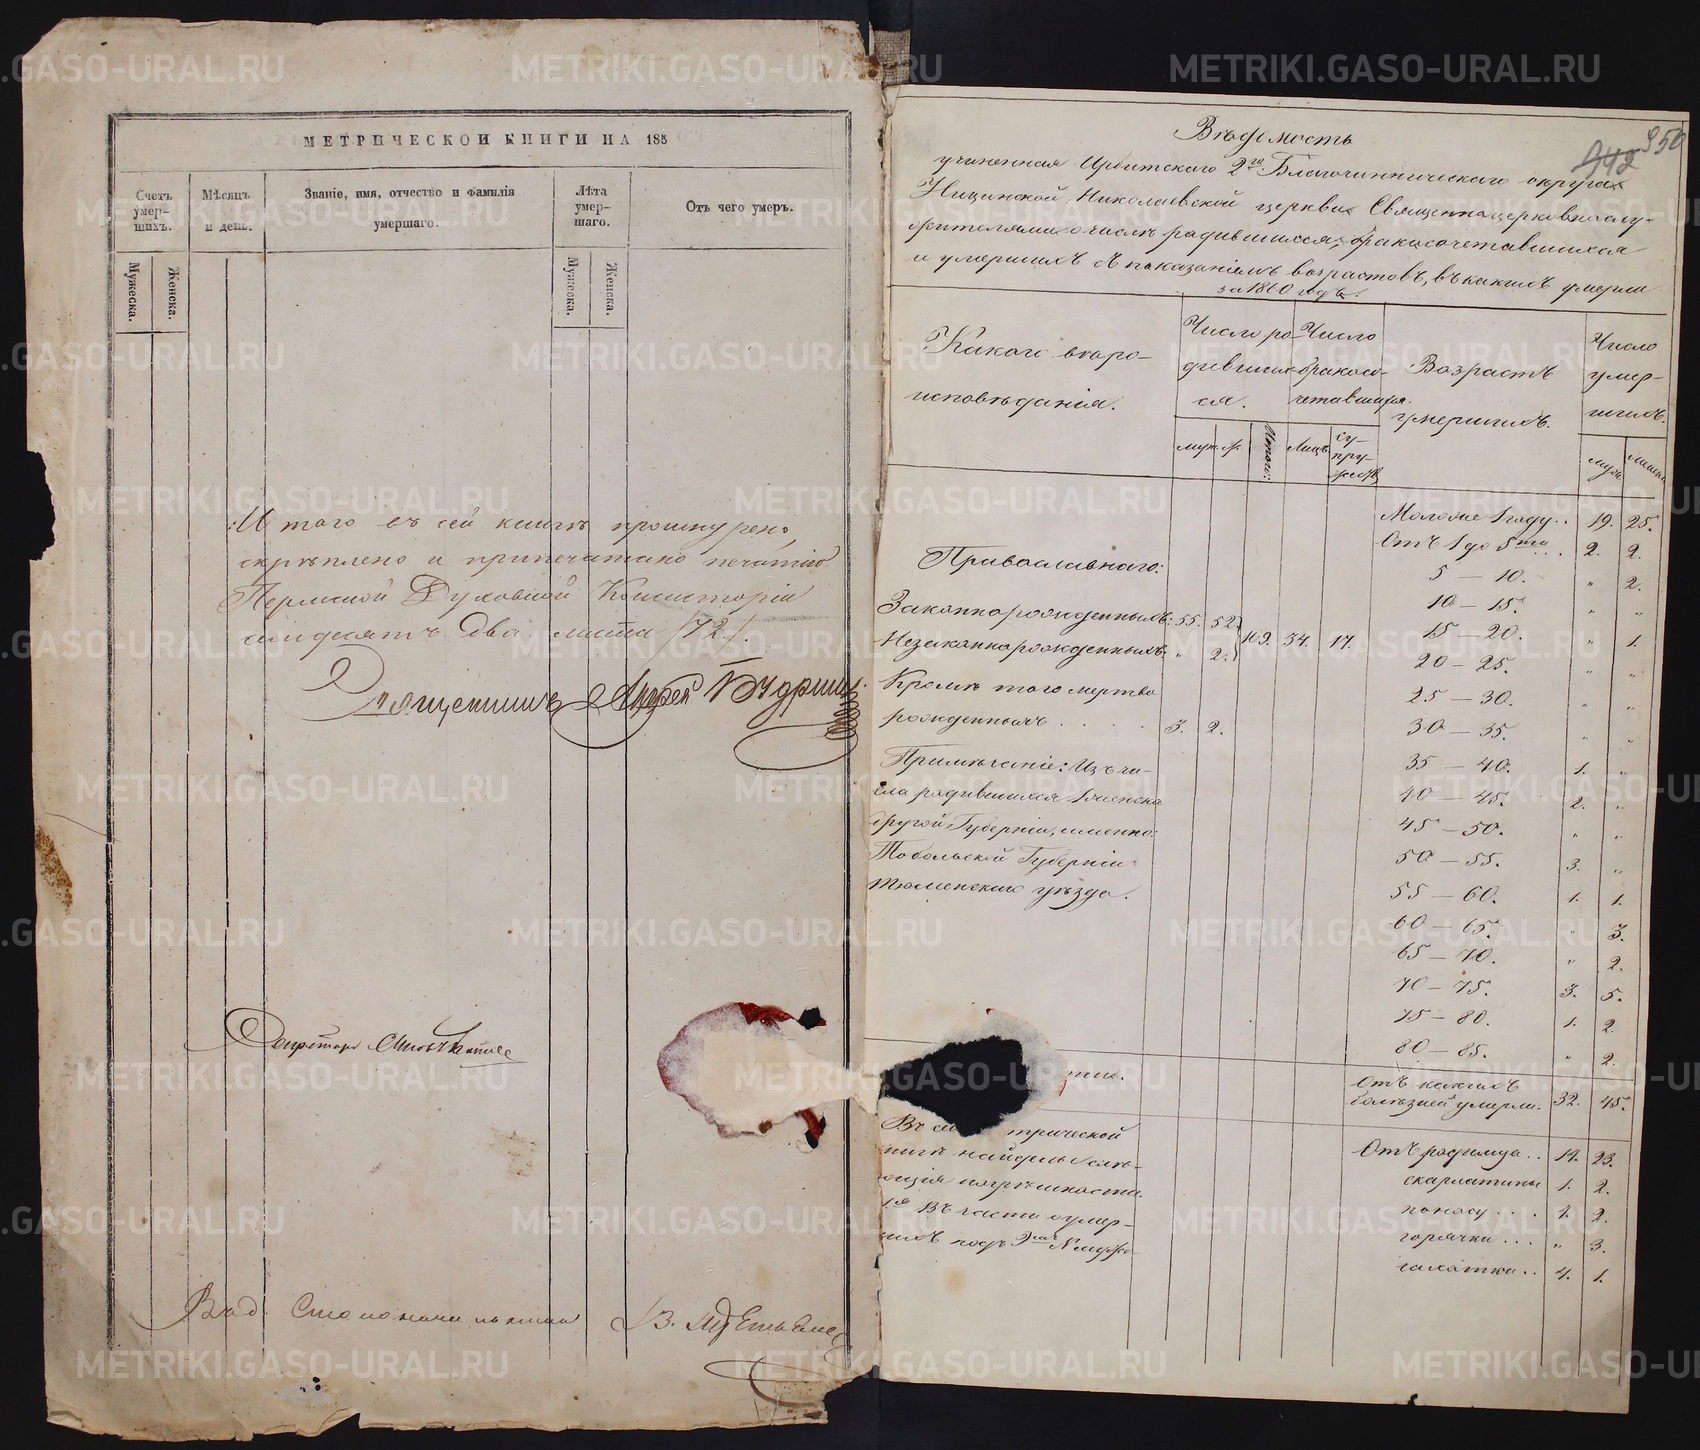 МЕТРИЧЕСКОЙ КНИГИ НА 185
Счетъ умер-шихъ.
Мѣсяцъ и день.
Званіе, имя, отчество и фамилія умершаго.
Лѣта умер-шаго.
Отъ чего умеръ.
Мужеска.
Женска.
Мужеска.
Женска.
Итого въ сей книгѣ прошнурено,
скрѣплено и припечатано печатію
Пермской Духовной Консисторіи
семдесятъ два листа /72/.
Священникъ Андрей
Секретарь
Столоначальника
950
942
Вѣдомость
учиненная Ирбитского 2го Благочинническаго округа
Ницинской Николаевской церкви Священноцерковнослу-
жителями о числѣ родившихся, бракосочетавшихся
и умершихъ съ показаніемъ возрастовъ, въ какихъ умерли
за 1860 годъ.
Какого вѣро-
исповѣданія.
Число ро-
дивших-
ся.
Число
бракосо-
четавшихся.
Возрастъ
умершихъ.
Число
умер-
шихъ.
муж. ж. Итого: Лицъ. Су-
пру-
жествъ
муж. женск.
Моложе 1 году.. 19. 25.
Отъ 1 до 5ти... 2. 2.
5 — 10. " 2.
10 — 15. " "
15 — 20. " 1.
20 — 25. " "
25 — 30. " "
30 — 35. " "
35 — 40. 1. "
40 — 45. 2. "
45 — 50. " "
50 — 55. 3. "
55 — 60. 1. 1.
60 — 65. " 3.
65 — 70. " 2.
70 — 75. 3. 5.
75 — 80. 1. 2.
80 — 85. " 2.
Православнаго:
Законнорожденныхъ: 55. 52. 109. 34. 17.
Незаконнорожденныхъ " 2.
Кромѣ того мертво
рожденныхъ . . . . 3. 2.
Примѣчаніе: Изъ чи-
сла родившихся 1 женска
другой Губерніи, именно:
Тобольской Губерніи
Тюменскаго уѣзда.
Отъ какихъ
болѣзней умерли. 32. 45.
Отъ родимца.. 14. 23.
скарлатины 1. 2.
поносу.... 1. 2.
горячки... " 3.
чахотки.. 4. 1.
Въ трической
книгѣ найдены слѣ-
погрѣшности.
1я Въ части о умер-
шихъ подъ № муж.
METRIKI.GASO-URAL.RU